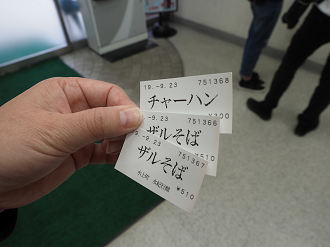 19.-9.23 751368
チャーハン
9.-9.23 751366
ザルそば
¥510
9.-9.23 751367
ザルそば
¥510